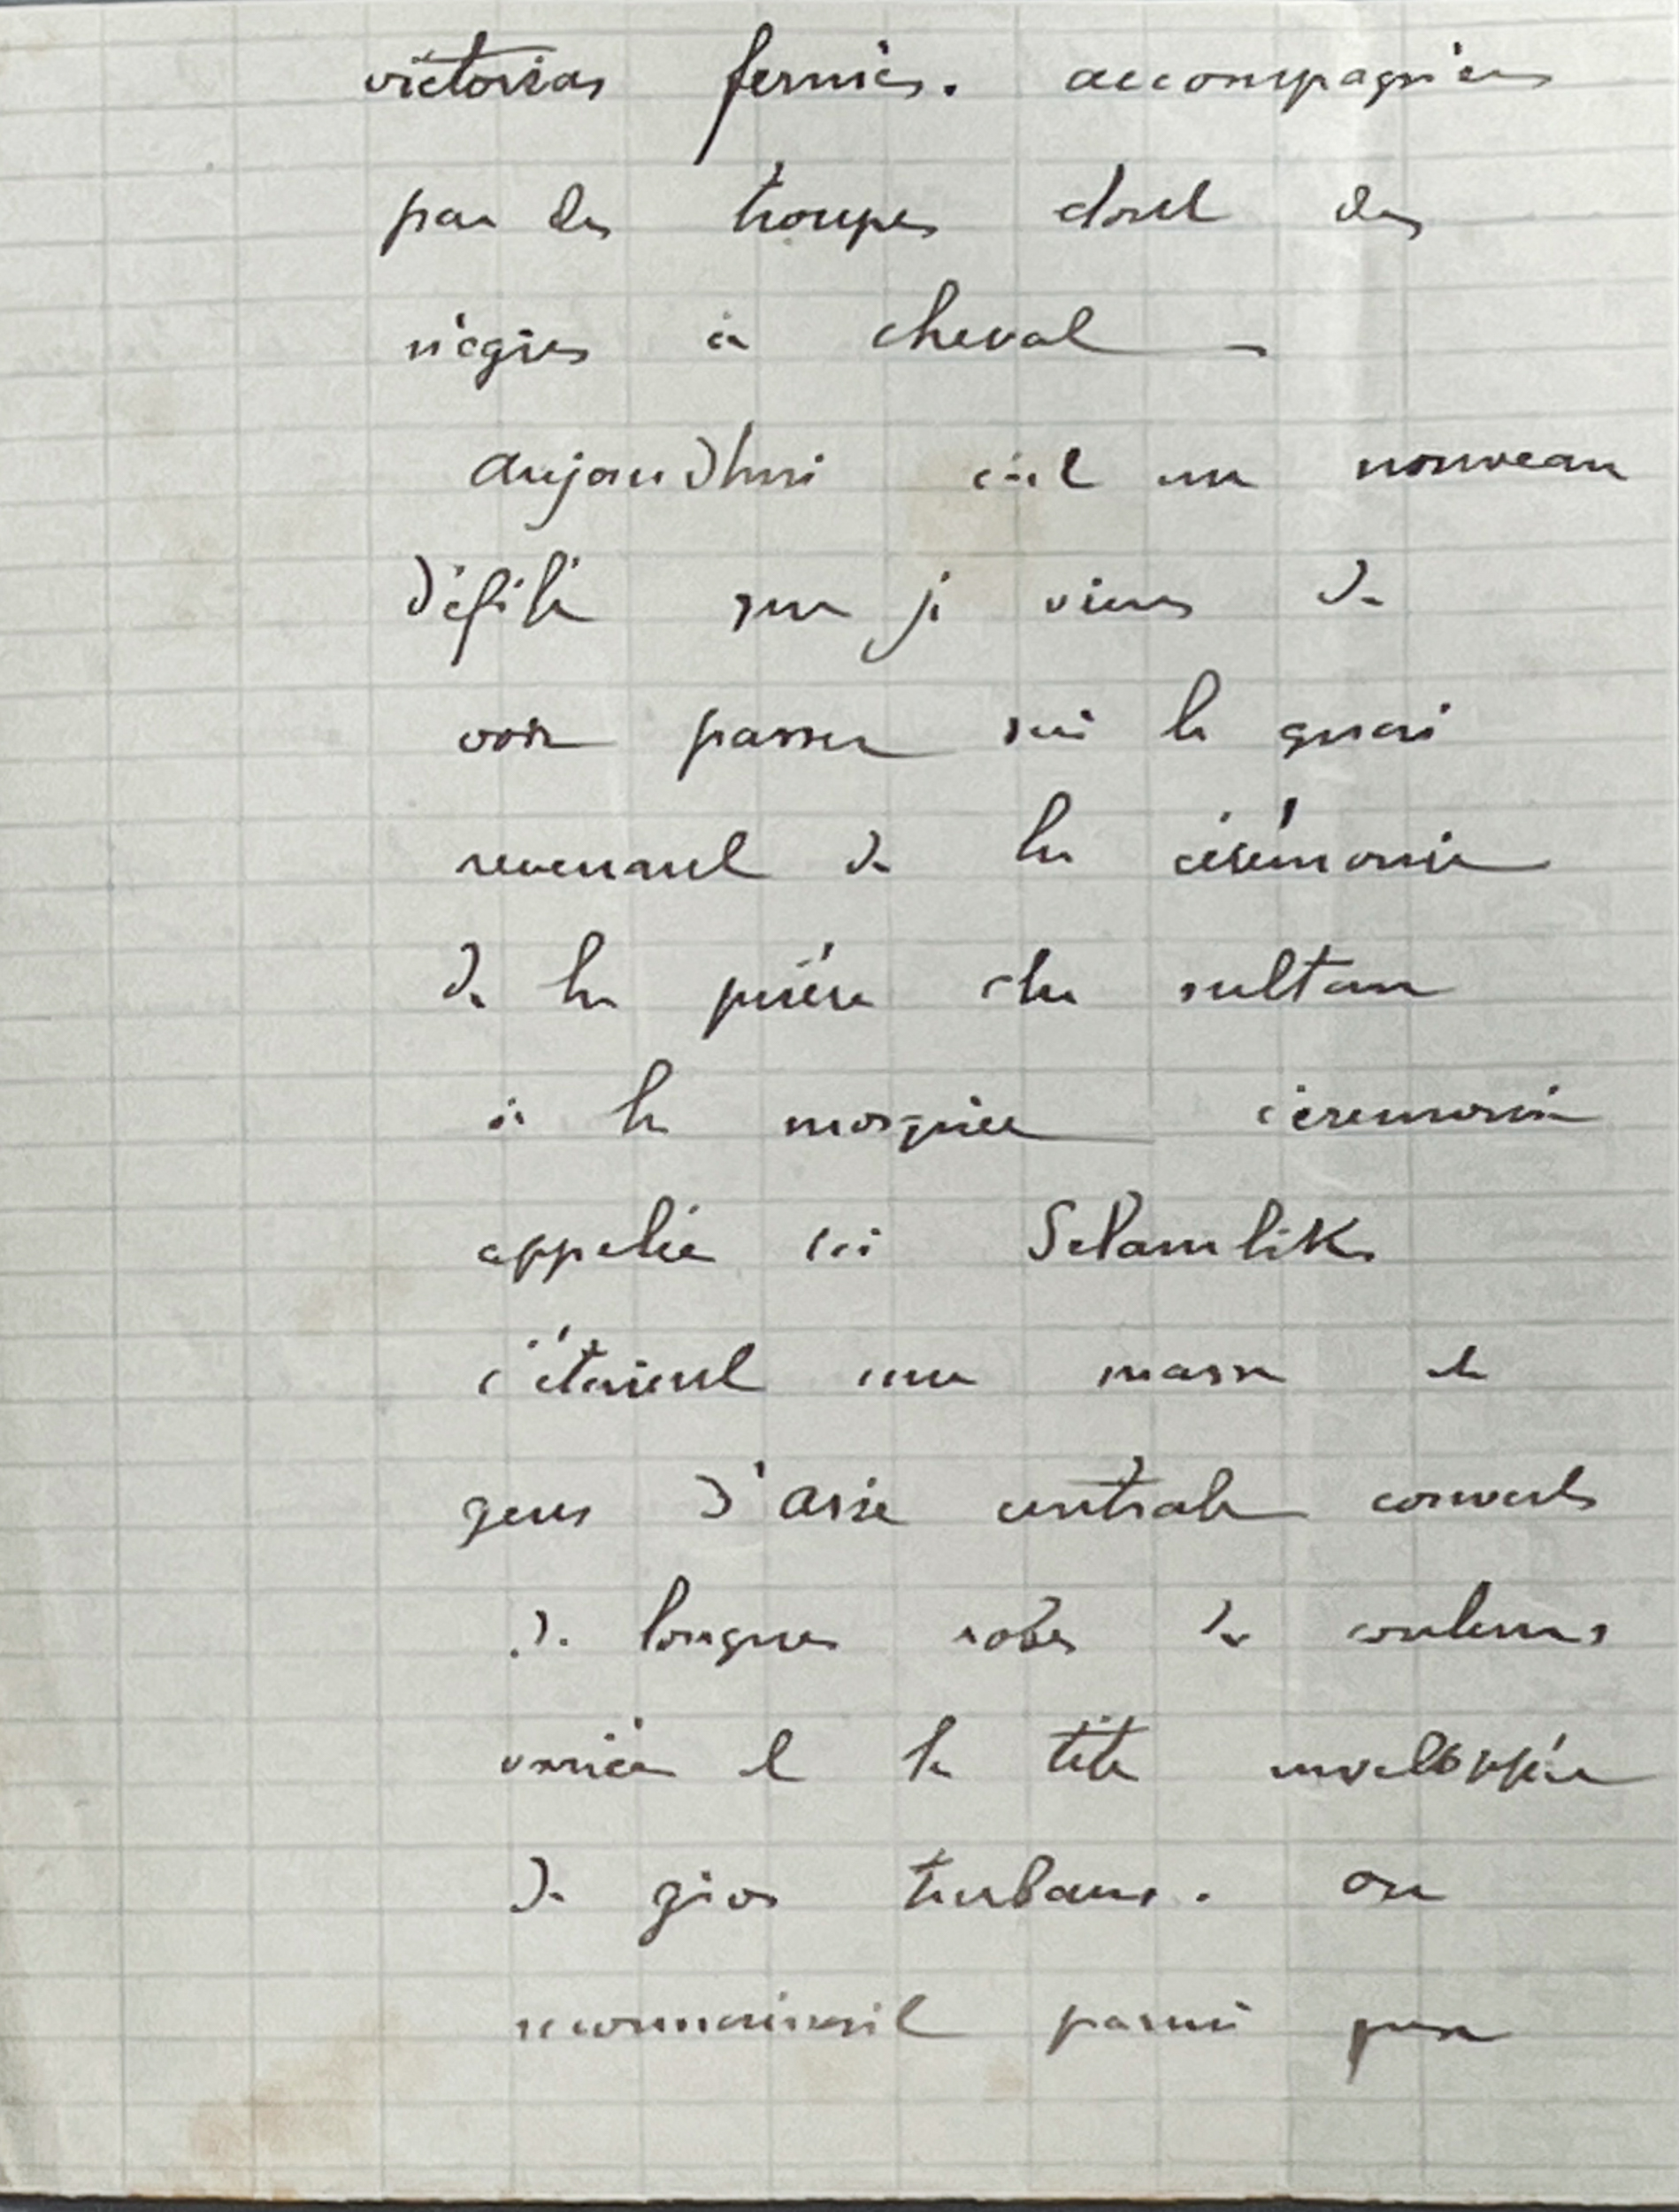 victorias fermées. accompagnées
par des troupes dont des
nègres à cheval –
aujourdhui c'est un nouveau
défilé que je viens de
voir passer sur le quai
revenant de la cérémonie
de la prière du sultan
à la mosquée cérémonie
appelée ici Selamlik
c'étaient une masse de
gens d'asie centrale couverts
de longues robes de couleurs
variées et la tête enveloppée
de gros turbans. on
reconnaissait parmi